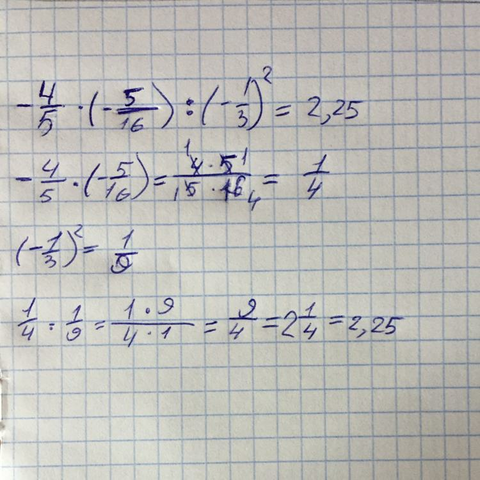 -4/5 · (-5/16) : (-1/3)² = 2,25
-4/5 · (-5/16) = 4·5/5·16 = 1/4
(-1/3)² = 1/9
1/4 : 1/9 = 1·9/4·1 = 9/4 = 2 1/4 = 2,25